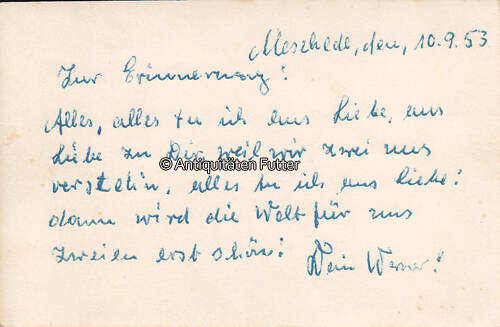 Meschede, den, 10.9.53
Zur Erinnerung!
Alles, alles tu ich aus Liebe, aus
Liebe zu Dir weil wir zwei uns
© Antiquitäten Futter
verstehn, alles tu ich aus Liebe!
dann wird die Welt für uns
zweien erst schön!
Dein Werner!